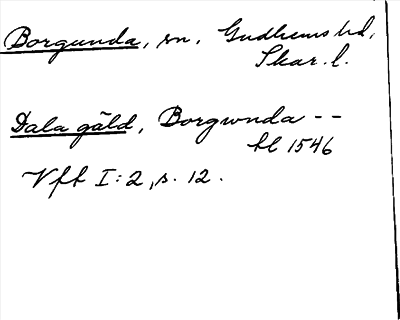 Borgunda, sn, Gudhems hd,
Skar. l.
Dala gäld, Borgwnda --
hl 1546
Vfl I:2, s. 12.